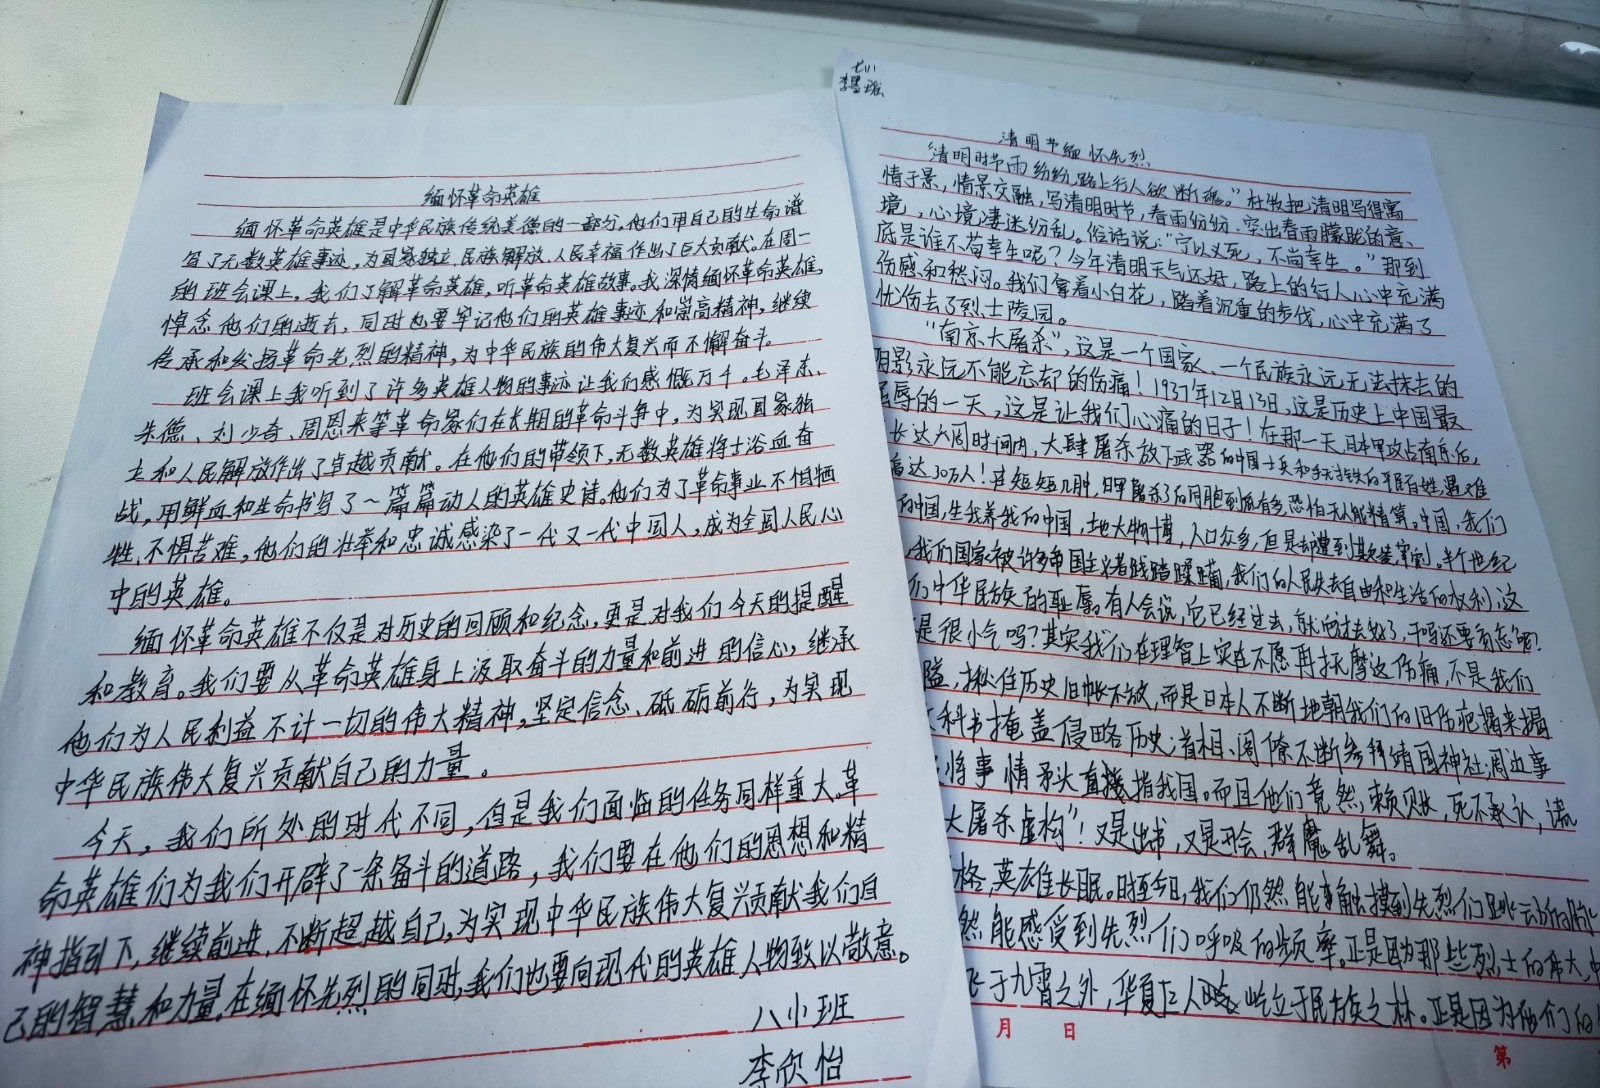 缅怀革命英雄
缅怀革命英雄是中华民族传统美德的一部分。他们用自己的生命谱
写了无数英雄事迹,为国家独立、民族解放、人民幸福作出了巨大贡献。在周一
的班会课上,我们了解革命英雄,听革命英雄故事。我深情缅怀革命英雄,
悼念他们的逝去,同时也要牢记他们的英雄事迹和崇高精神,继续
传承和发扬革命先烈的精神,为中华民族的伟大复兴而不懈奋斗。
班会课上我听到了许多英雄人物的事迹让我们感慨万千。毛泽东、
朱德、刘少奇、周恩来等革命家们在长期的革命斗争中,为实现国家独
立和人民解放作出了卓越贡献。在他们的带领下,无数英雄将士浴血奋
战,用鲜血和生命书写了一篇篇动人的英雄史诗。他们为了革命事业不怕牺
牲、不惧苦难,他们的壮举和忠诚感染了一代又一代中国人,成为全国人民心
中的英雄。
缅怀革命英雄不仅是对历史的回顾和纪念,更是对我们今天的提醒
和教育。我们要从革命英雄身上汲取奋斗的力量和前进的信心,继承
他们为人民利益不计一切的伟大精神,坚定信念、砥砺前行,为实现
中华民族伟大复兴贡献自己的力量。
今天,我们所处的时代不同,但是我们面临的任务同样重大。革
命英雄们为我们开辟了一条奋斗的道路,我们要在他们的思想和精
神指引下,继续前进,不断超越自己,为实现中华民族伟大复兴贡献我们自
己的智慧和力量。在缅怀先烈的同时,我们也要向现代的英雄人物致以敬意。
八小班
李欣怡
李墨瑶
清明节缅怀先烈
“清明时节雨纷纷,路上行人欲断魂。”杜牧把清明写得寓
情于景,情景交融,写清明时节,春雨纷纷,突出春雨朦胧的意
境,心境凄迷纷乱。俗话说:“宁以义死,不尚幸生。”那到
底是谁不苟幸生呢?今年清明天气还好,路上的行人心中充满
伤感和愁闷。我们拿着小白花,踏着沉重的步伐,心中充满了
忧伤去了烈士陵园。
“南京大屠杀”,这是一个国家、一个民族永远无法抹去的
阴影,永远不能忘却的伤痛!1937年12月13日,这是历史上中国最
辱的一天,这是让我们心痛的日子!在那一天,日本军攻占南京后,
长达六周时间内,大肆屠杀放下武器的中国士兵和手无寸铁的平民百姓,遇难
者达30万人!在短短几周,日军屠杀了的同胞到底有多,恐怕无人能精算。中国,我们
的中国,生我养我的中国,土地大物博,人口众多,但是却遭到宰割。半个世纪
,我们国家被许多帝国主义者践踏蹂躏,我们的人民失去自由和生活的权利,这
们中华民族的耻辱。有人会说,它已经过去,就过去好了,干吗还要
是很小气吗?其实我们在理智上实在不愿再抚摩这伤痛,不是我们
隘,揪住历史旧帐不放,而是日本人不断地朝我们的旧伤疤揭来揭
科书掩盖侵略历史;首相、阁僚不断参拜靖国神社;周边事
将事情矛头直接指我国。而且他们竟然赖账,死不承认,谎
大屠杀虚构”!又是出书,又是开会,群魔乱舞。
格,英雄长眠。时至今日,我们仍然能够触摸到先烈们跳动的
然能感受到先烈们呼吸的频率。正是因为那些烈士的伟大,中
于九霄之外,华夏巨人屹立于民族之林。正是因为他们的
月 日
第